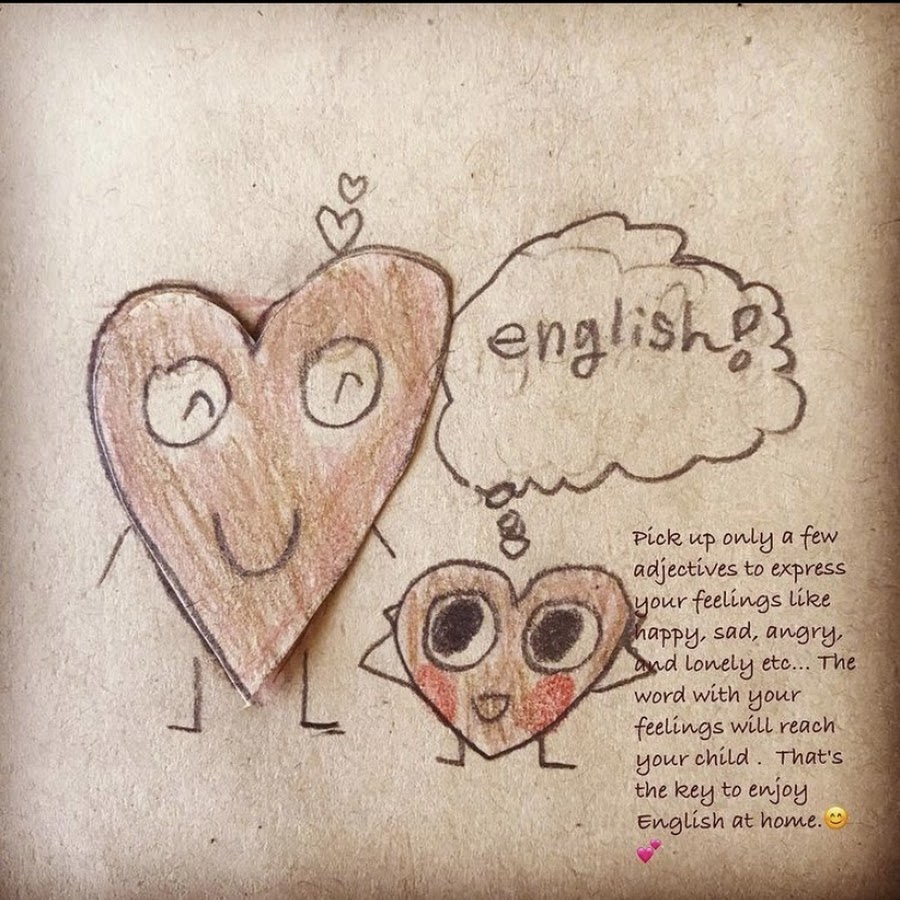 english?
Pick up only a few
adjectives to express
your feelings like
happy, sad, angry,
and lonely etc... The
word with your
feelings will reach
your child .  That's
the key to enjoy
English at home.😊
💕